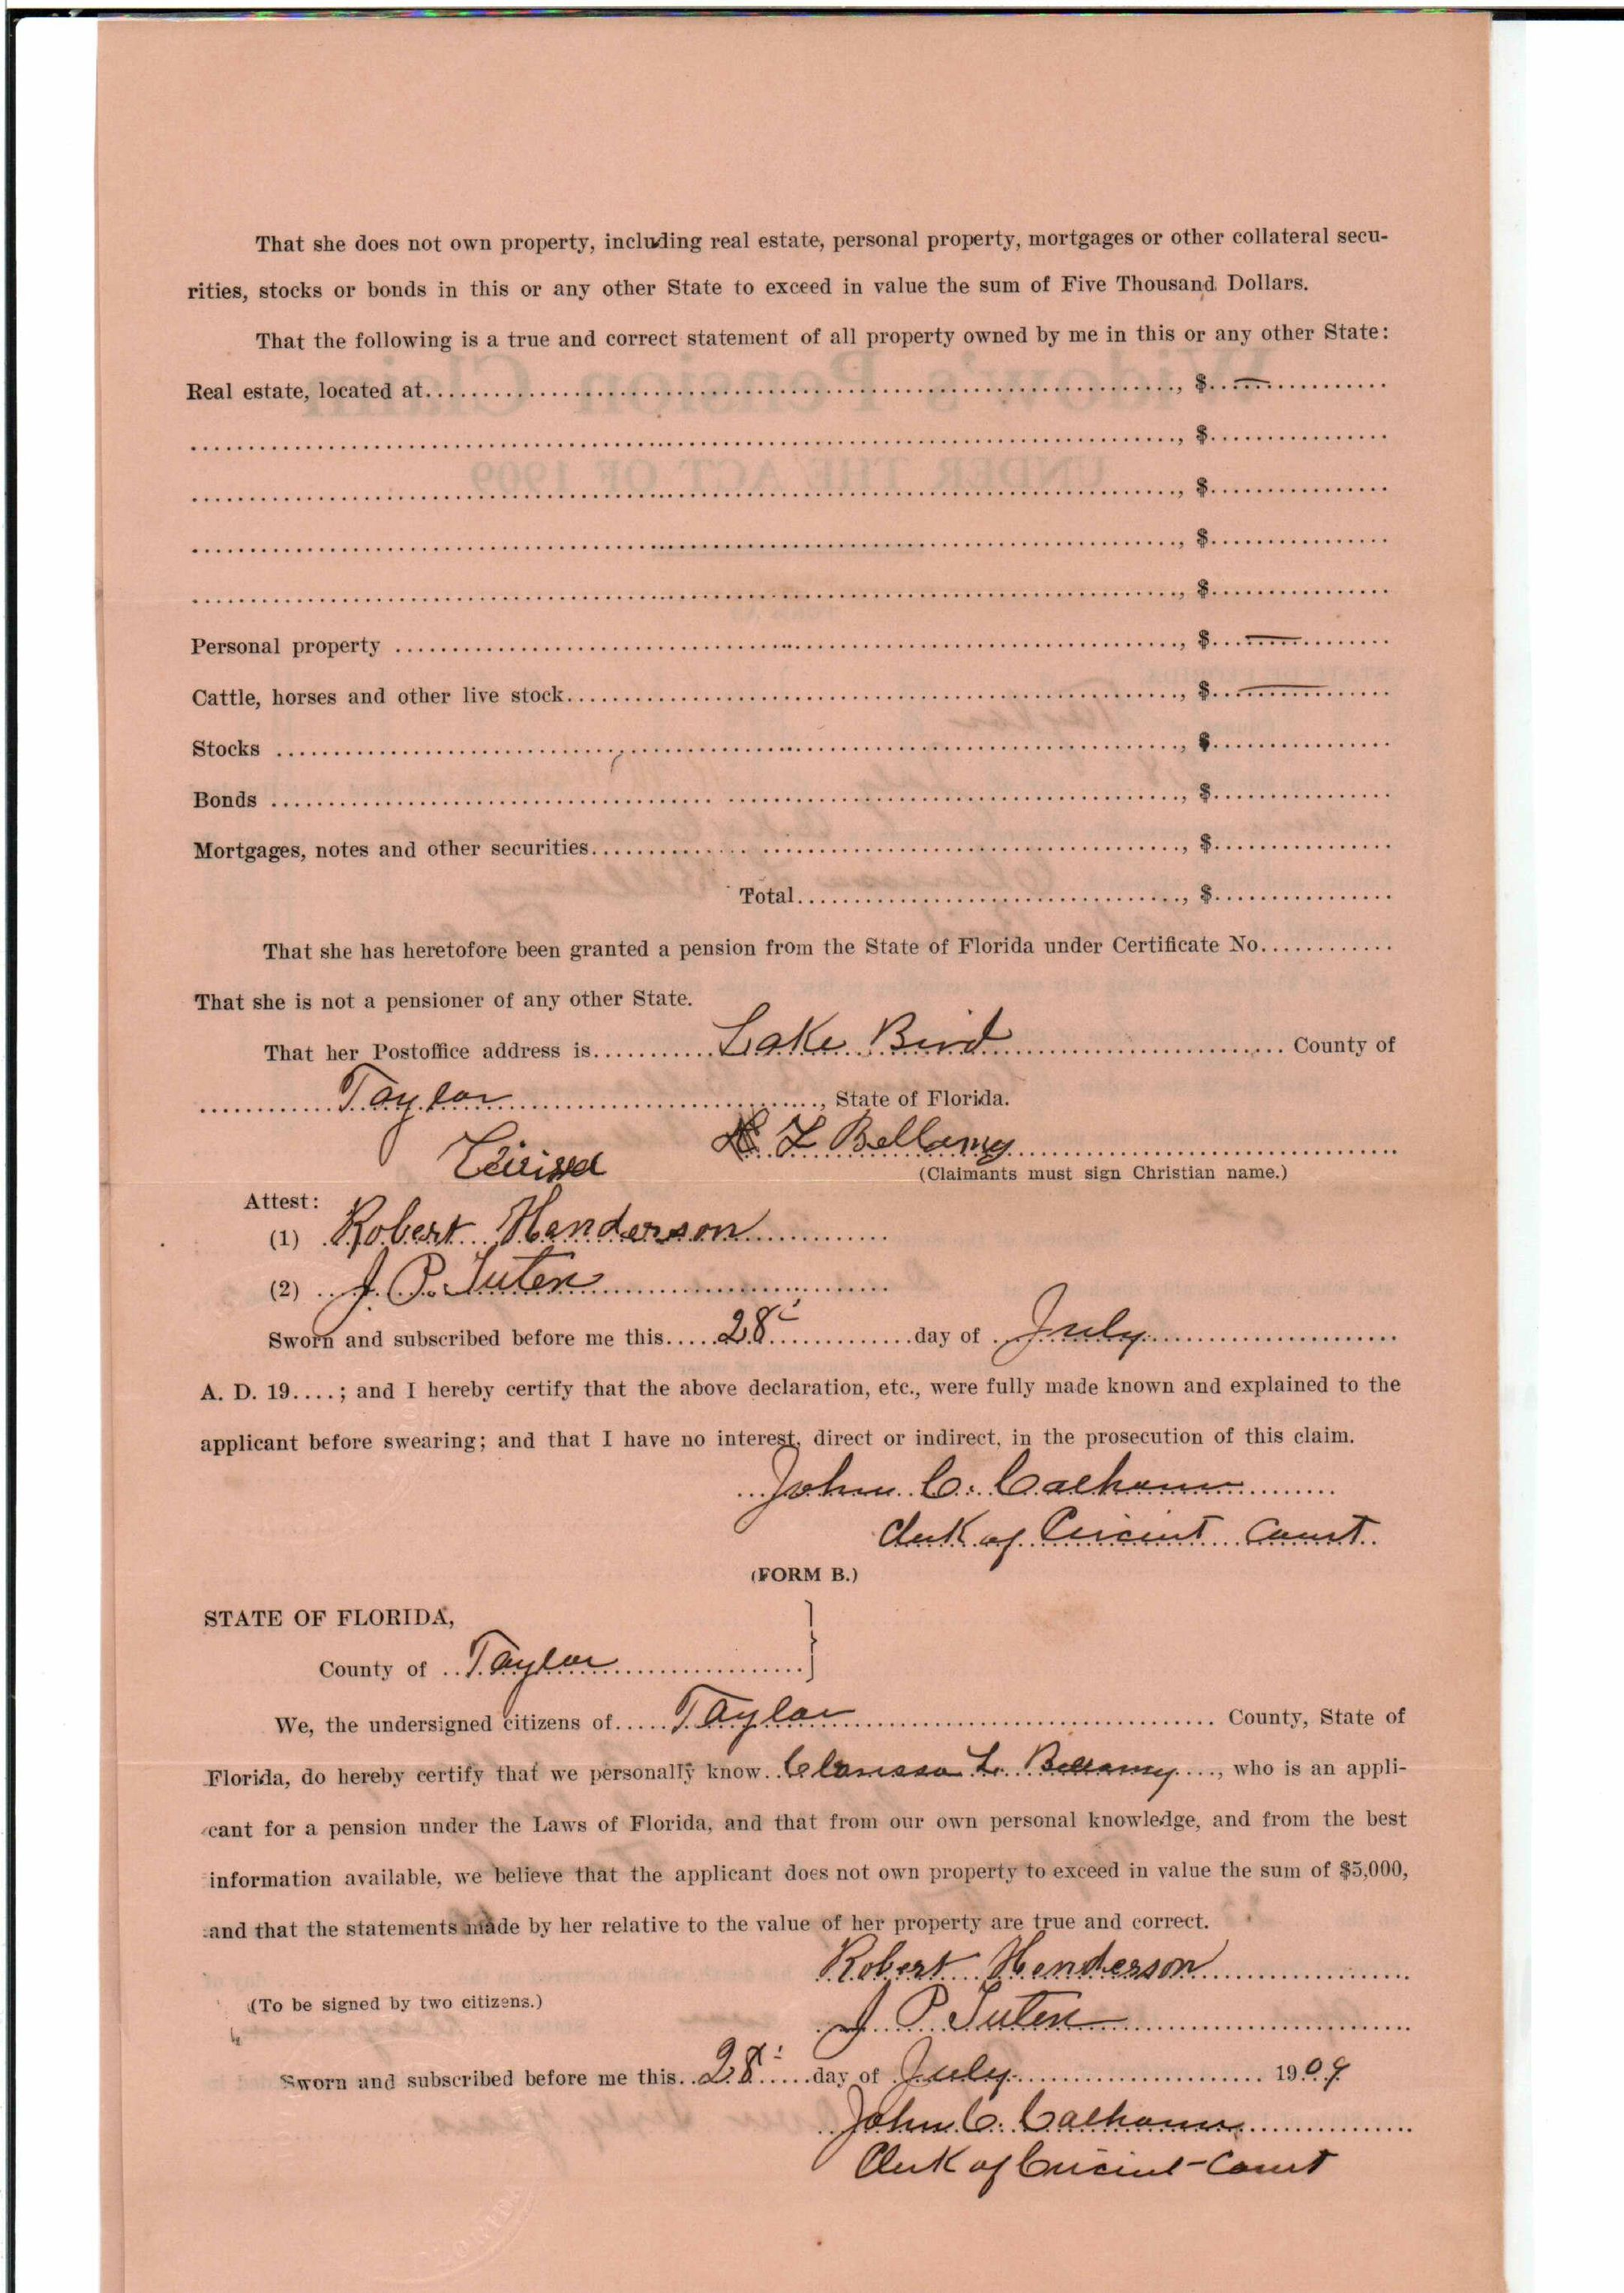 That she does not own property, including real estate, personal property, mortgages or other collateral secu-
rities, stocks or bonds in this or any other State to exceed in value the sum of Five Thousand Dollars.
That the following is a true and correct statement of all property owned by me in this or any other State:
Real estate, located at..............................., $.... — ............
..............................., $................
..............................., $................
..............................., $................
..............................., $................
Personal property ..............................., $.... — ............
Cattle, horses and other live stock..............................., $.... — ............
Stocks ..............................., $................
Bonds ..............................., $................
Mortgages, notes and other securities..............................., $................
Total..............................., $................
That she has heretofore been granted a pension from the State of Florida under Certificate No............
That she is not a pensioner of any other State.
That her Postoffice address is............Lake Bird............ County of
............Taylor............, State of Florida.
L Bellamy
(Claimants must sign Christian name.)
Attest:
(1) Robert Henderson
(2) J. P. Tuten
Sworn and subscribed before me this.....28............day of ..July............
A. D. 19....; and I hereby certify that the above declaration, etc., were fully made known and explained to the
applicant before swearing; and that I have no interest, direct or indirect, in the prosecution of this claim.
John C. Calhoun
Clerk of Circuit Court.
(FORM B.)
STATE OF FLORIDA,
County of ..Taylor............
We, the undersigned citizens of.....Taylor............ County, State of
Florida, do hereby certify that we personally know..Clarissa L. Bellamy...., who is an appli-
cant for a pension under the Laws of Florida, and that from our own personal knowledge, and from the best
information available, we believe that the applicant does not own property to exceed in value the sum of $5,000,
and that the statements made by her relative to the value of her property are true and correct.
Robert Henderson
(To be signed by two citizens.)
J. P. Tuten
Sworn and subscribed before me this..28.....day of July............ 1909
John C. Calhoun
Clerk of Circuit Court